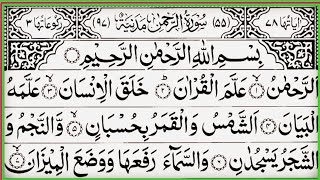 اٰیاتہا ۷۸ (۵۵) سُوْرَةُ الرَّحْمٰنِ مَدَنِیَّةٌ (۹۷) رکوعاتہا ۳
بِسْمِ اللّٰهِ الرَّحْمٰنِ الرَّحِیْمِ
اَلرَّحْمٰنُ ۙ۱ عَلَّمَ الْقُرْاٰنَ ؕ۲ خَلَقَ الْاِنْسَانَ ۙ۳ عَلَّمَهُ
الْبَیَانَ ۴ اَلشَّمْسُ وَ الْقَمَرُ بِحُسْبَانٍ ۪۵ وَّ النَّجْمُ وَ
الشَّجَرُ یَسْجُدٰنِ ۶ وَ السَّمَآءَ رَفَعَهَا وَ وَضَعَ الْمِیْزَانَ ۙ۷